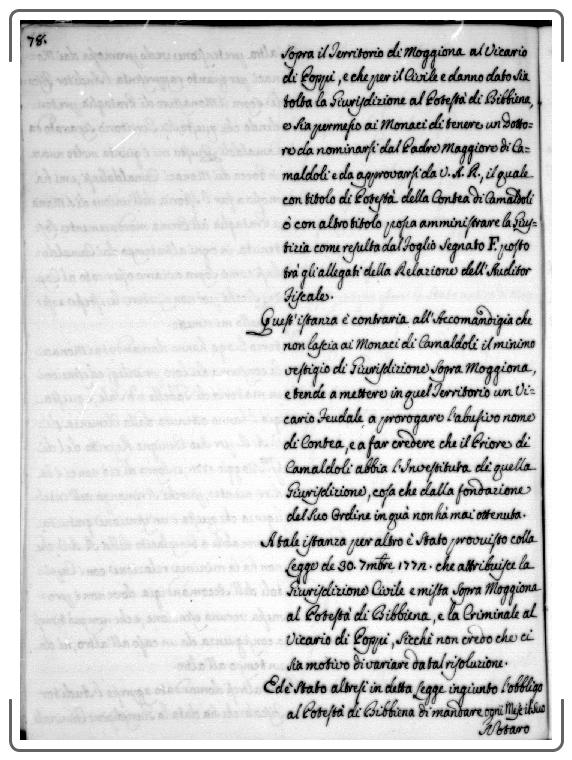 78.
Sopra il Territorio di Moggiona al Vicario
di Poppi, e che per il Civile e danno dato sia
tolta la Giurisdizione al Potestà di Bibbiena,
e sia permesso ai Monaci di tenere un dotto-
re da nominarsi dal Padre Maggiore di Ca-
maldoli e da approvarsi da V. A. R., il quale
con titolo di Potestà della Contea di Camaldoli
ò con altro titolo possa amministrare la Giu-
stizia come resulta dal Foglio Segnato F. posto
trà gli allegati della Relazione dell'Auditor
Fiscale.
Quest'istanza è contraria all'Accomandigia che
non lascia ai Monaci di Camaldoli il minimo
vestigio di Giurisdizione Sopra Moggiona,
e tende a mettere in quel Territorio un Vi-
cario Feudale a prorogare l'abusivo nome
di Contea, e a far credere che il Priore di
Camaldoli abbia l'Investitura di quella
Giurisdizione, cosa che dalla fondazione
del Suo Ordine in quà non hà mai ottenuta.
A tale istanza per altro è Stato provvisto colla
Legge de 30. 7mbre 1772. che attribuisce la
Giurisdizione Civile e mista Sopra Moggiona
al Potestà di Bibbiena, e la Criminale al
Vicario di Poppi, Sicchè non credo che ci
sia motivo di variare da tal risoluzione.
Ed è Stato altresi in detta Legge ingiunto l'obbligo
al Potestà di Bibbiena di mandare ogni Mese il Suo
Notaro